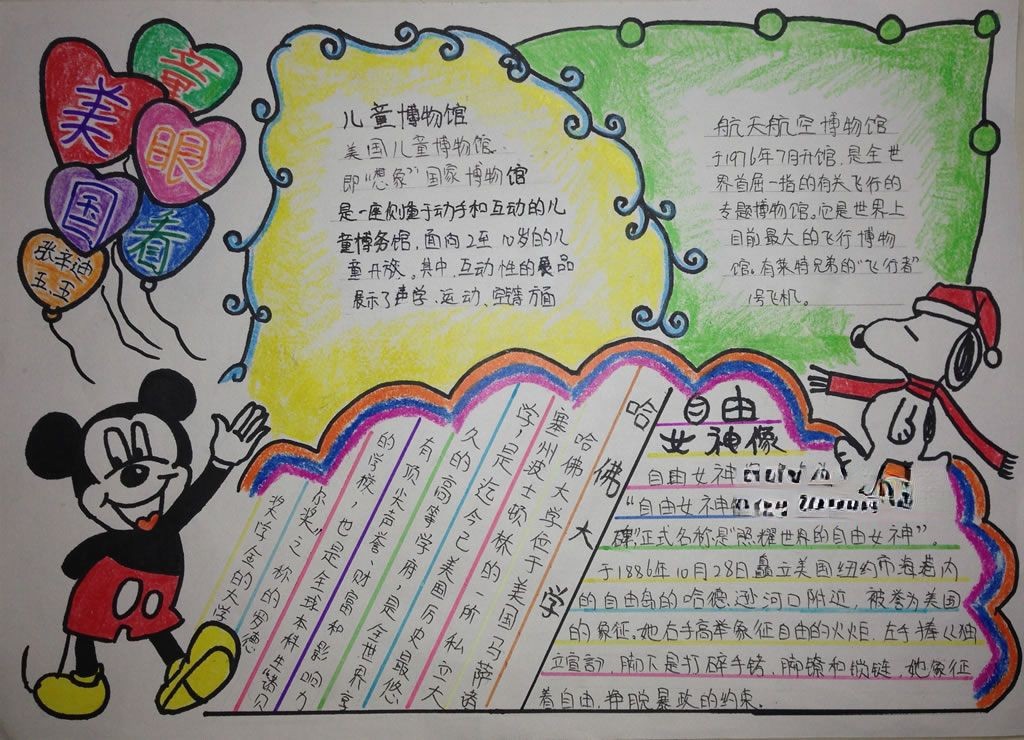 童
美
眼
国
看
五.五
儿童博物馆
美国儿童博物馆.
即“想象”国家博物馆
是一座侧重于动手和互动的儿
童博务馆,面向2至10岁的儿
童开放。其中,互动性的展品
展示了声学、运动、空气等方面
航天航空博物馆
于1976年7月开馆,是全世
界首屈一指的有关飞行的
专题博物馆。它是世界上
目前最大的飞行博物
馆.有莱特兄弟的“飞行者”
1号飞机。
哈佛大学
哈佛大学位于美国马萨诸
塞州波士顿林的一所私立大
学,是迄今已美国历史最悠
久的高等学府,是全世界享
有顶尖声誉、财富和影响力
的学校,也是全球本科生诸贝
尔奖”之称的罗德
奖学金的大学
自由
女神像
自由女神
“自由女神
碑”正式名称是“照耀世界的自由女神”。
于1886年10月28日矗立美国纽约市海港内
的自由岛的哈德逊河口附近,被誉为美国
的象征。她右手高举象征自由的火炬,左手捧《独
立宣言》,脚下是打碎手铐、脚镣和锁链,她象征
着自由,挣脱暴政的约束。